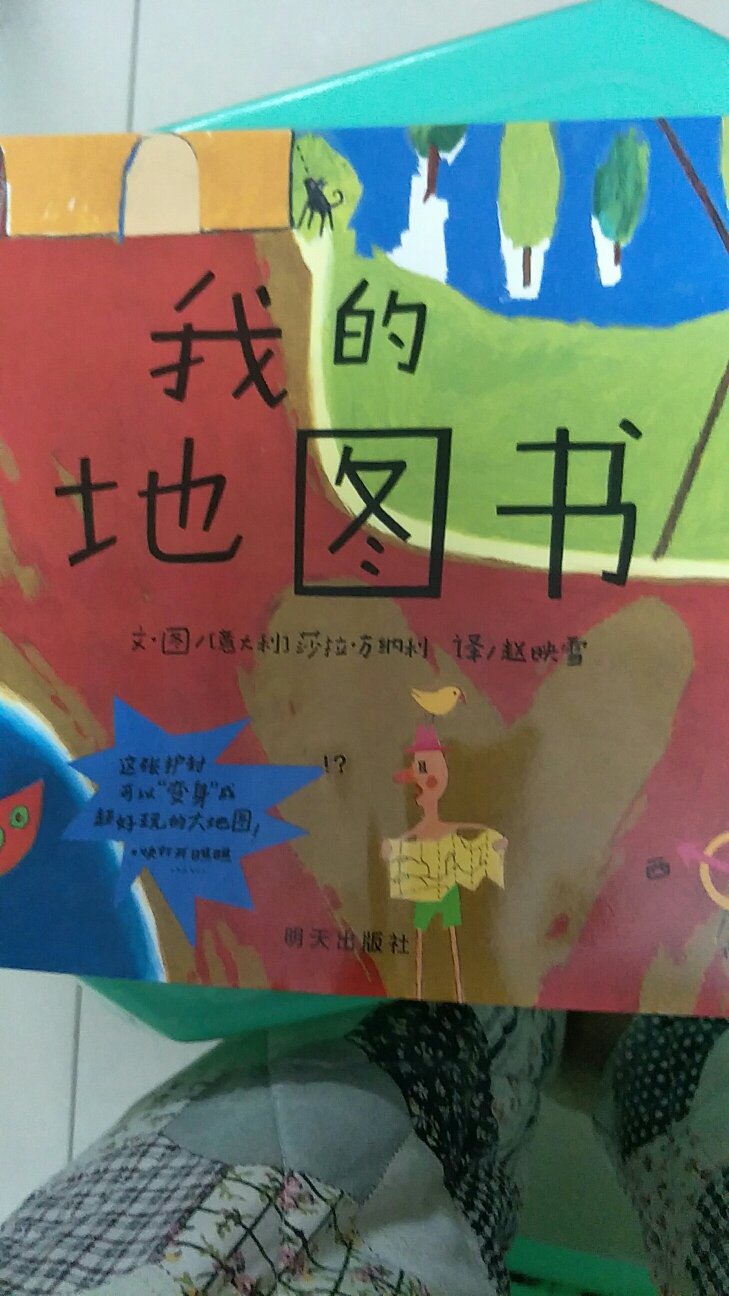 我的
地图书
文·图/[意大利]莎拉·方纳利 译/赵映雪
这张护封
可以“变身”成
超好玩的大地图!
·快打开瞧瞧
……
!?
西
明天出版社